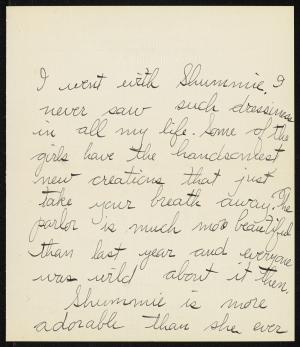 I went with Shummie. I
never saw such dressiness
in all my life. Some of the
girls have the handsomest
new creations that just
take your breath away. The
parlor is much more beautiful
than last year and everyone
was wild about it then.
Shummie is more
adorable than she ever